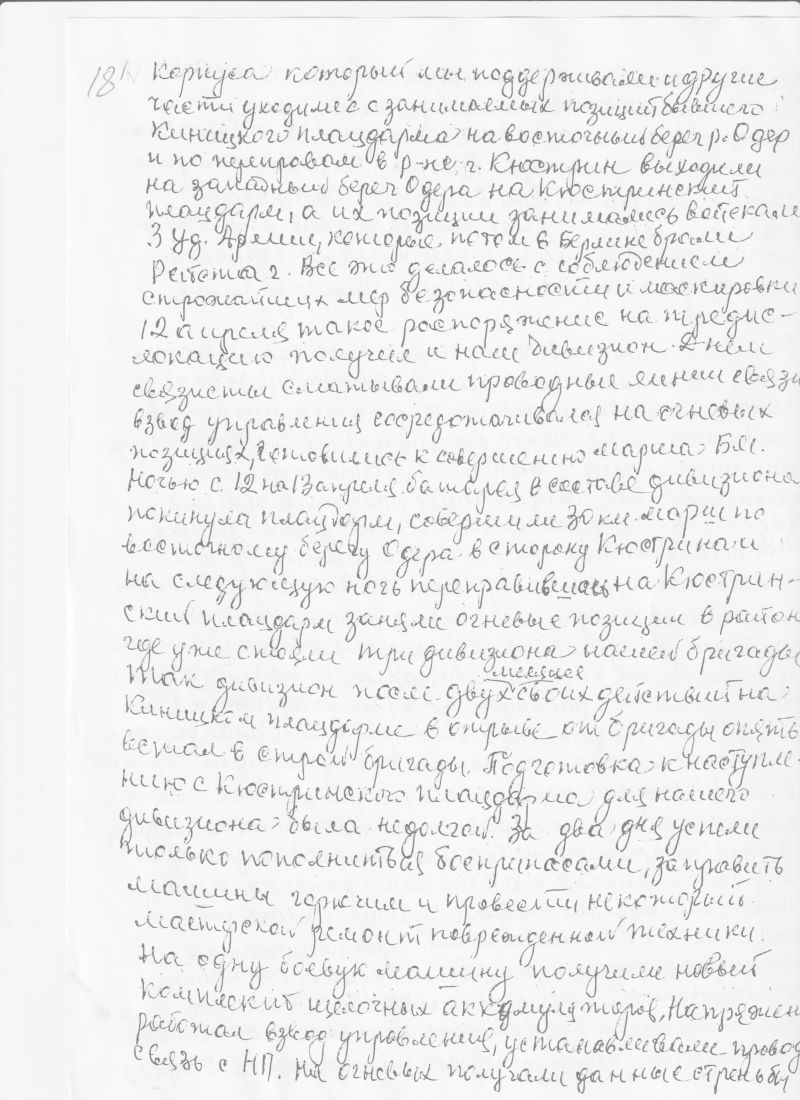 18
корпуса который мы поддерживали и другие
части уходили с занимаемых позиций бывшего
Киницкого плацдарма на восточный берег р. Одер
и по переправам в р-не г. Кюстрин выходили
на западный берег Одера на Кюстринский
плацдарм, а их позиции занимались войсками
3 уд. Армии, которые потом в Берлине брали
Рейхстаг. Все это делалось с соблюдением
строжайших мер безопасности и маскировки
12 апреля такое распоряжение на передис-
локацию получил и наш дивизион. Днем
связисты сматывали проводные линии связи
взвод управления сосредотачивался на огневых
позициях, готовились к совершению марша БМ.
Ночью с 12 на 13 апреля батарея в составе дивизиона
покинула плацдарм, совершили 30 км. марш по
восточному берегу Одера в сторону Кюстрина и
на следующую ночь переправившись на Кюстрин-
ский плацдарм заняли огневые позиции в район
где уже стояли три дивизиона нашей бригады
Так дивизион после двух месяцев своих действий на
Киницком плацдарме в отрыве от бригады опять
встал в строй бригады. Подготовка к наступле-
нию с Кюстринского плацдарма для нашего
дивизиона была недолгой. За два дня успели
только пополниться боеприпасами, заправить
машины горючим и провести некоторый
мастерской ремонт поврежденной техники.
На одну боевую машину получили новый
комплект щелочных аккумуляторов. Напряжен
работал взвод управления, устанавливали провод
связь с НП. На огневых получали данные стрельбы